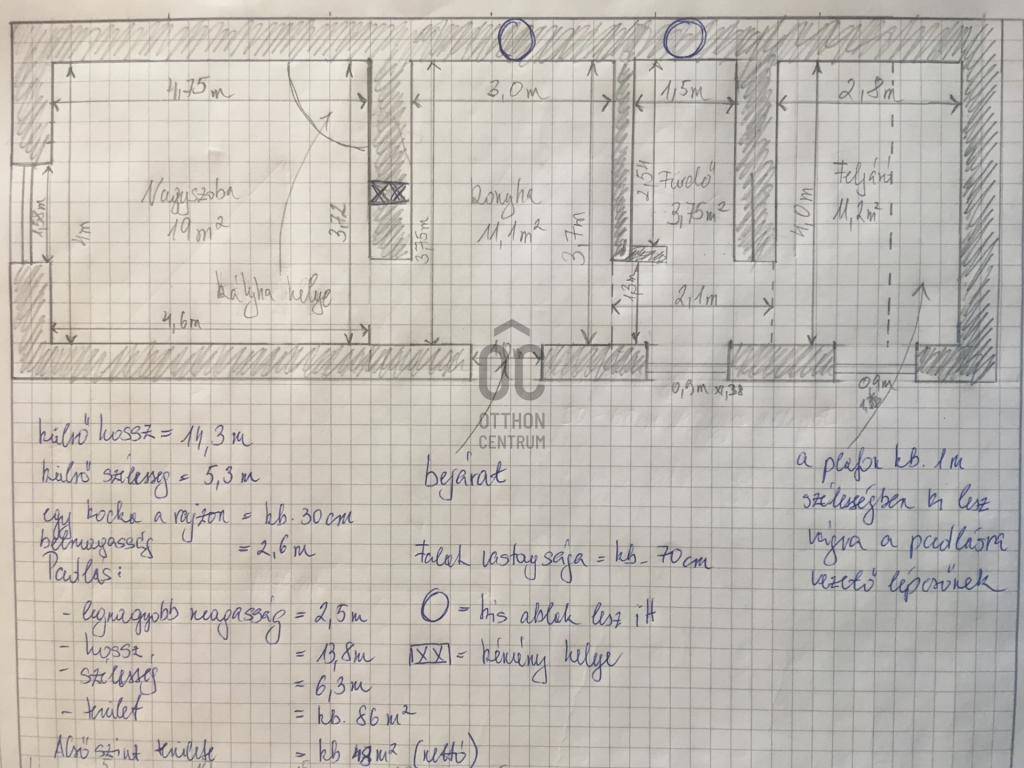 4,75m
3,0m
1,5m
2,8m
Nagyszoba
19m²
Konyha
11,1m²
Fürdő
3,75m²
Feljáró
11,2m²
1,58m
4m
3,72
3,75m
3,7m
2,54
4,0m
kályha helye
4,6m
1,3m
2,1m
0,9m
0,9m
OC
OTTHON
CENTRUM
bejárat
külső hossz = 14,3m
külső szélesség = 5,3m
egy kocka a rajzon = kb. 30cm
belmagasság = 2,6m
Padlás:
- legnagyobb magasság = 2,5m
- hossz = 13,8m
- szélesség = 6,3m
- terület = kb. 86m²
Alsó szint területe = kb 48m² (nettó)
falak vastagsága = kb. 70cm
= kis ablak lesz itt
XX = kémény helye
a plafon kb. 1m
szélességben ki lesz
vágva a padlásra
vezető lépcsőnek